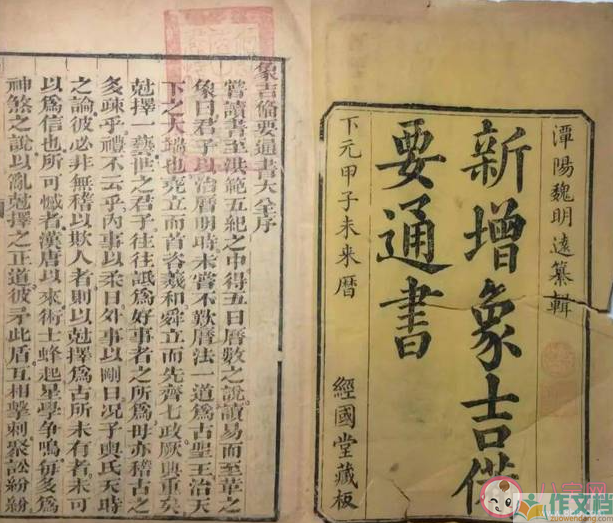 潭陽魏明遠纂輯
新增象吉俻
要通書
下元甲子未来暦
經國堂藏板
象吉俻要通書大全序
嘗讀書至洪範五紀之中得五曰曆數之說讀易而至革之
象曰君子以治曆明時未嘗不歎曆法一道爲古聖王治天
下之大端也堯立而首咨羲和舜立而先齊七政厥典重矣
尅擇一藝世之君子往往詆爲好事者之所爲毋亦稽古之
多疎乎禮不云乎內事以柔日外事以剛日况子輿氏天時
之論彼必非無稽以欺人者則以尅擇爲古所未有者未可
以爲信也所可憾者漢唐以來術士蜂起星學争鳴每多爲
神煞之說以亂尅擇之正道彼矛此盾互相擊刺聚訟紛紛
作文档
zuowendang.com